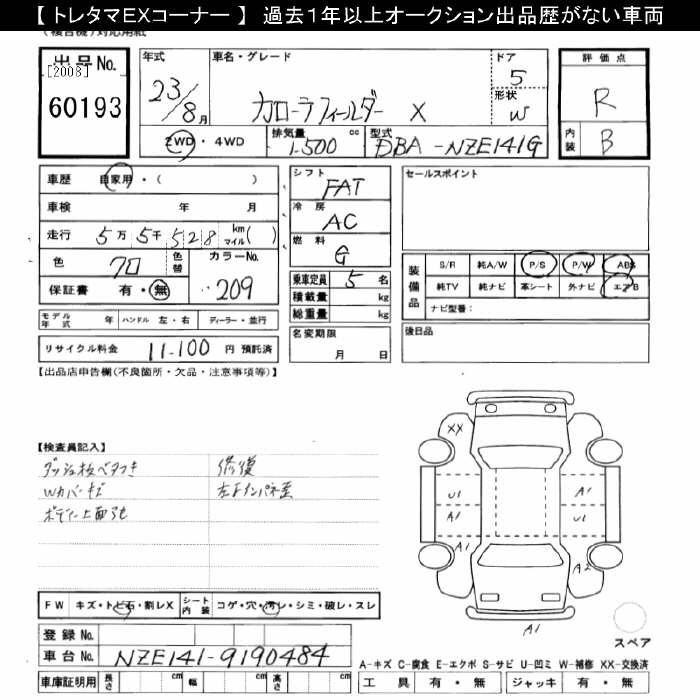 【 トレタマEXコーナー 】 過去1年以上オークション出品歴がない車両
(複合機)対応用紙
出品No.
[2008]
60193
年式
23/8月
車名・グレード
カローラフィールダー X
ドア
5
形状
W
評価点
R
内装
B
2WD・4WD
排気量
1.500 cc
型式
DBA-NZE141G
車歴 自家用・( )
車検 年 月
走行 5万 5千 528 km マイル( )
色 クロ 色替
カラーNo.
209
保証書 有・無
シフト
FAT
冷房
AC
燃料
G
乗車定員 5 名
積載量 kg
総重量 kg
名変期限
月 日
セールスポイント
装備品
S/R 純A/W P/S P/W ABS
純TV 純ナビ 革シート 外ナビ エアB
ナビ型番:
後日品
モデル年式 年 ハンドル 左・右 ディーラー・並行
リサイクル料金 11.100 円 預託済
【出品店申告欄(不良箇所・欠品・注意事項等)】
【検査員記入】
ダッシュ板ベタつき
Wカバーキズ
ボディー上面
修復
左Fインパネ歪
XX
U1
A1
A1
A1
A1
U1
A2
A1
スペア
FW キズ・トビ石・割レX
シート内装 コゲ・穴・汚レ・シミ・破レ・スレ
登録No.
車台No. NZE141-9190484
車庫証明用 長さ cm 幅 cm 高さ cm
A-キズ C-腐食 E-エクボ S-サビ U-凹ミ W-補修 XX-交換済
工具 有・無 ジャッキ 有・無